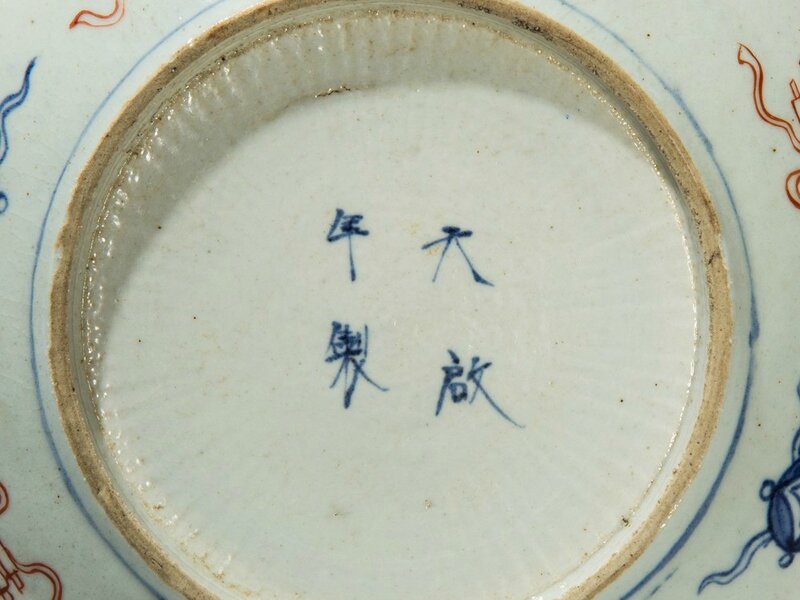 天啟
年製